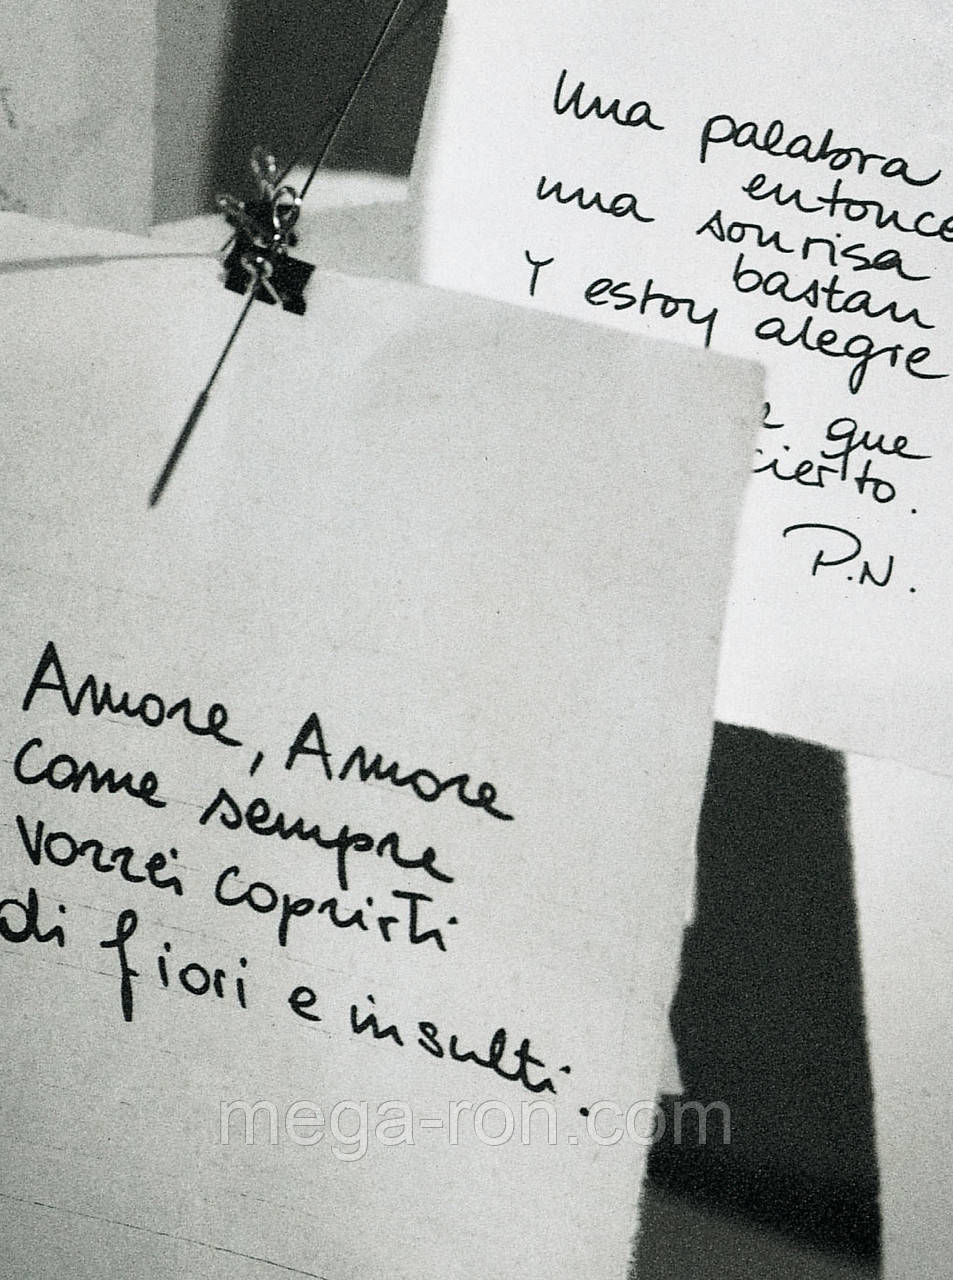 Una palabra
entonce
una sonrisa
bastan
Y estoy alegre
que
cierto.
P.N.
Amore, Amore
come sempre
vorrei coprirti
di fiori e insulti.
mega-ron.com